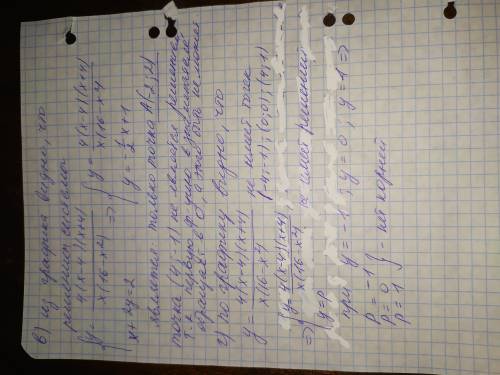 в) из графика видно, что
решением системы
{ y = 4(x-4)(x+4) / x(16-x²) => { y = 4(x-4)(x+4) / x(16-x²)
x + 2y = 2 y = -1/2 x + 1
является только точка A(-2;2)
точка (4;-1) не является решением
т.к первую ф-цию в знаменателе
обращает в 0, а этого быть не может
г) по графику видно, что
y = 4(x-4)(x+4) / x(16-x²) не имеет точек
(-4;-1); (0;0); (4;1)
=> { y = 4(x-4)(x+4) / x(16-x²) не имеет решений
y = p
при y = -1; y = 0; y = 1 =>
p = -1
p = 0 } - нет корней
p = 1